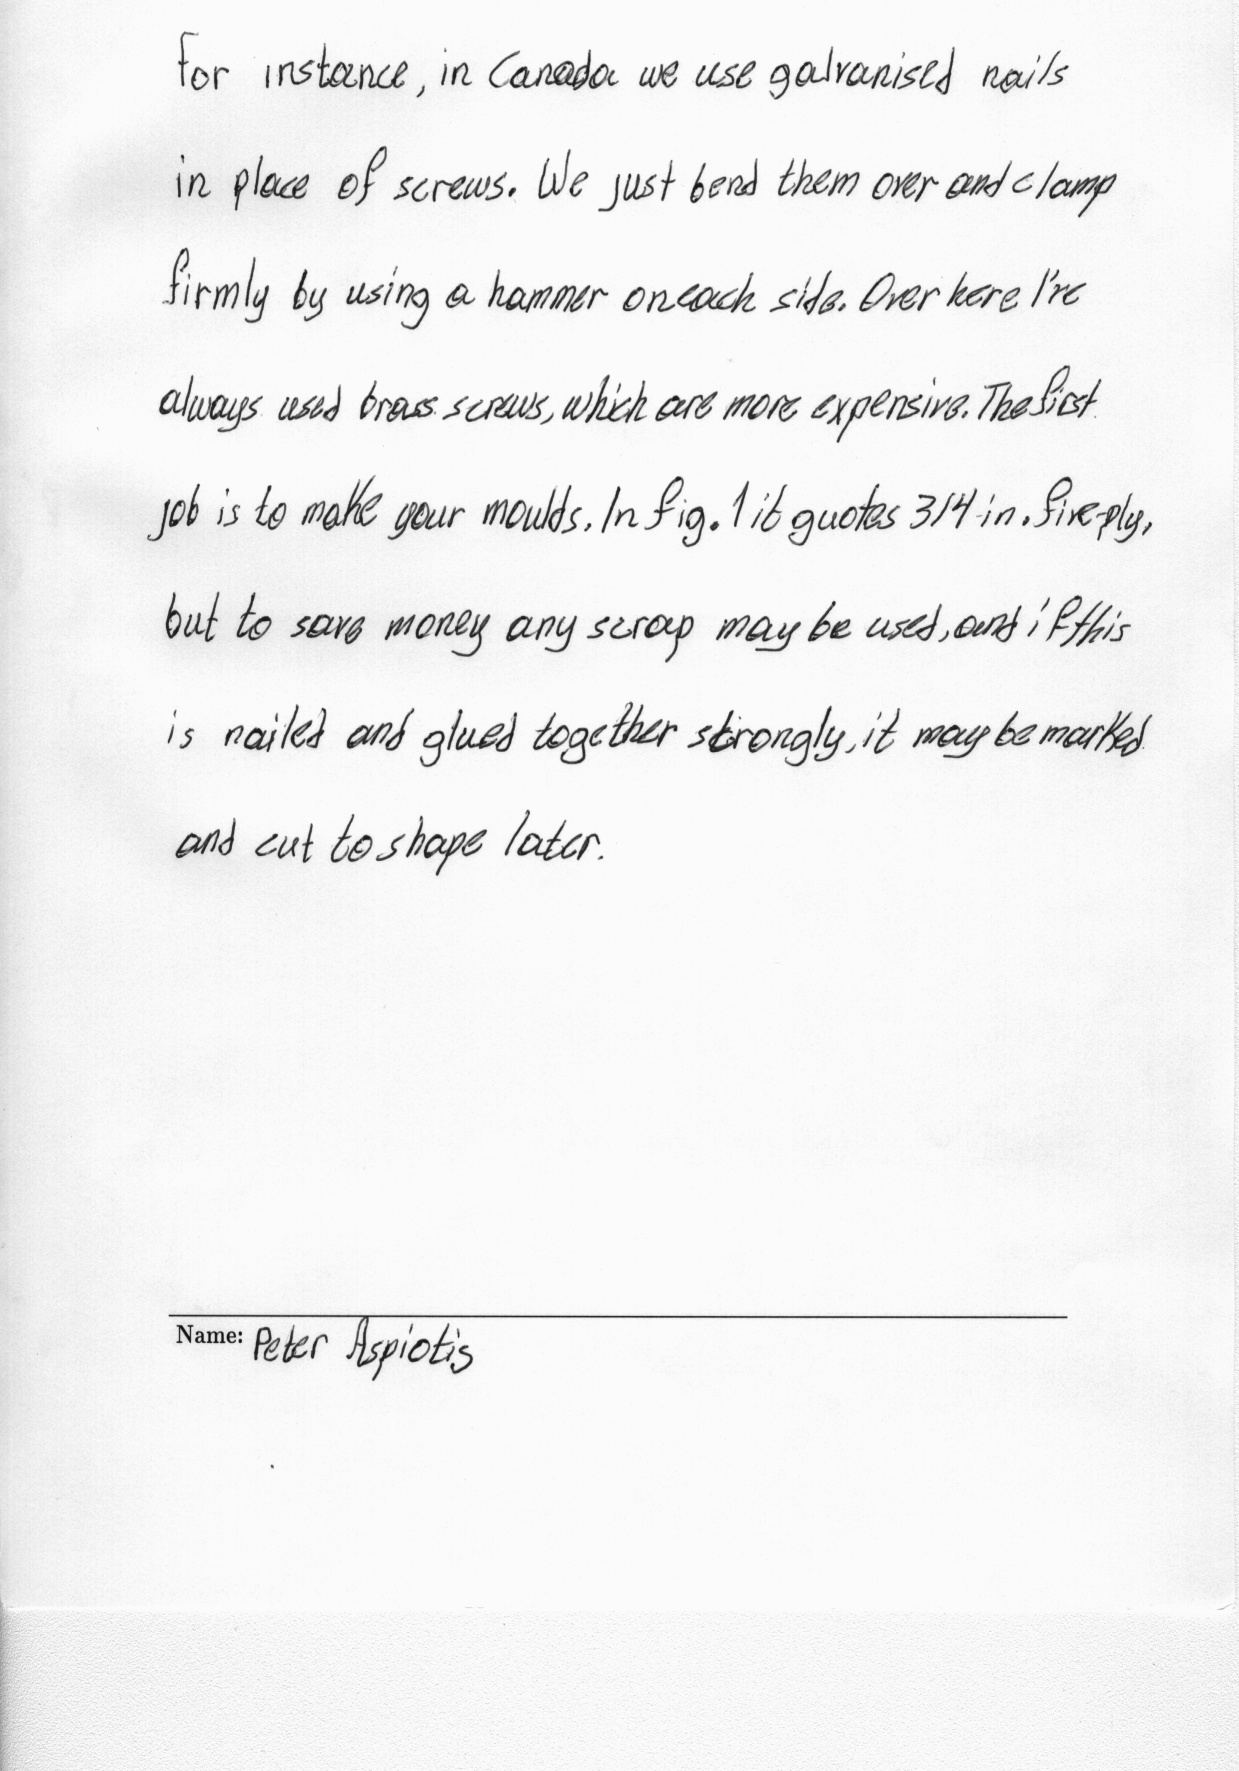 For instance, in Canada we use galvanised nails
in place of screws. We just bend them over and clamp
firmly by using a hammer on each side. Over here I've
always used brass screws, which are more expensive. The first
job is to make your moulds. In fig. 1 it quotes 3/4 in. five-ply,
but to save money any scrap may be used, and if this
is nailed and glued together strongly, it may be marked
and cut to shape later.
Name: Peter Aspiotis